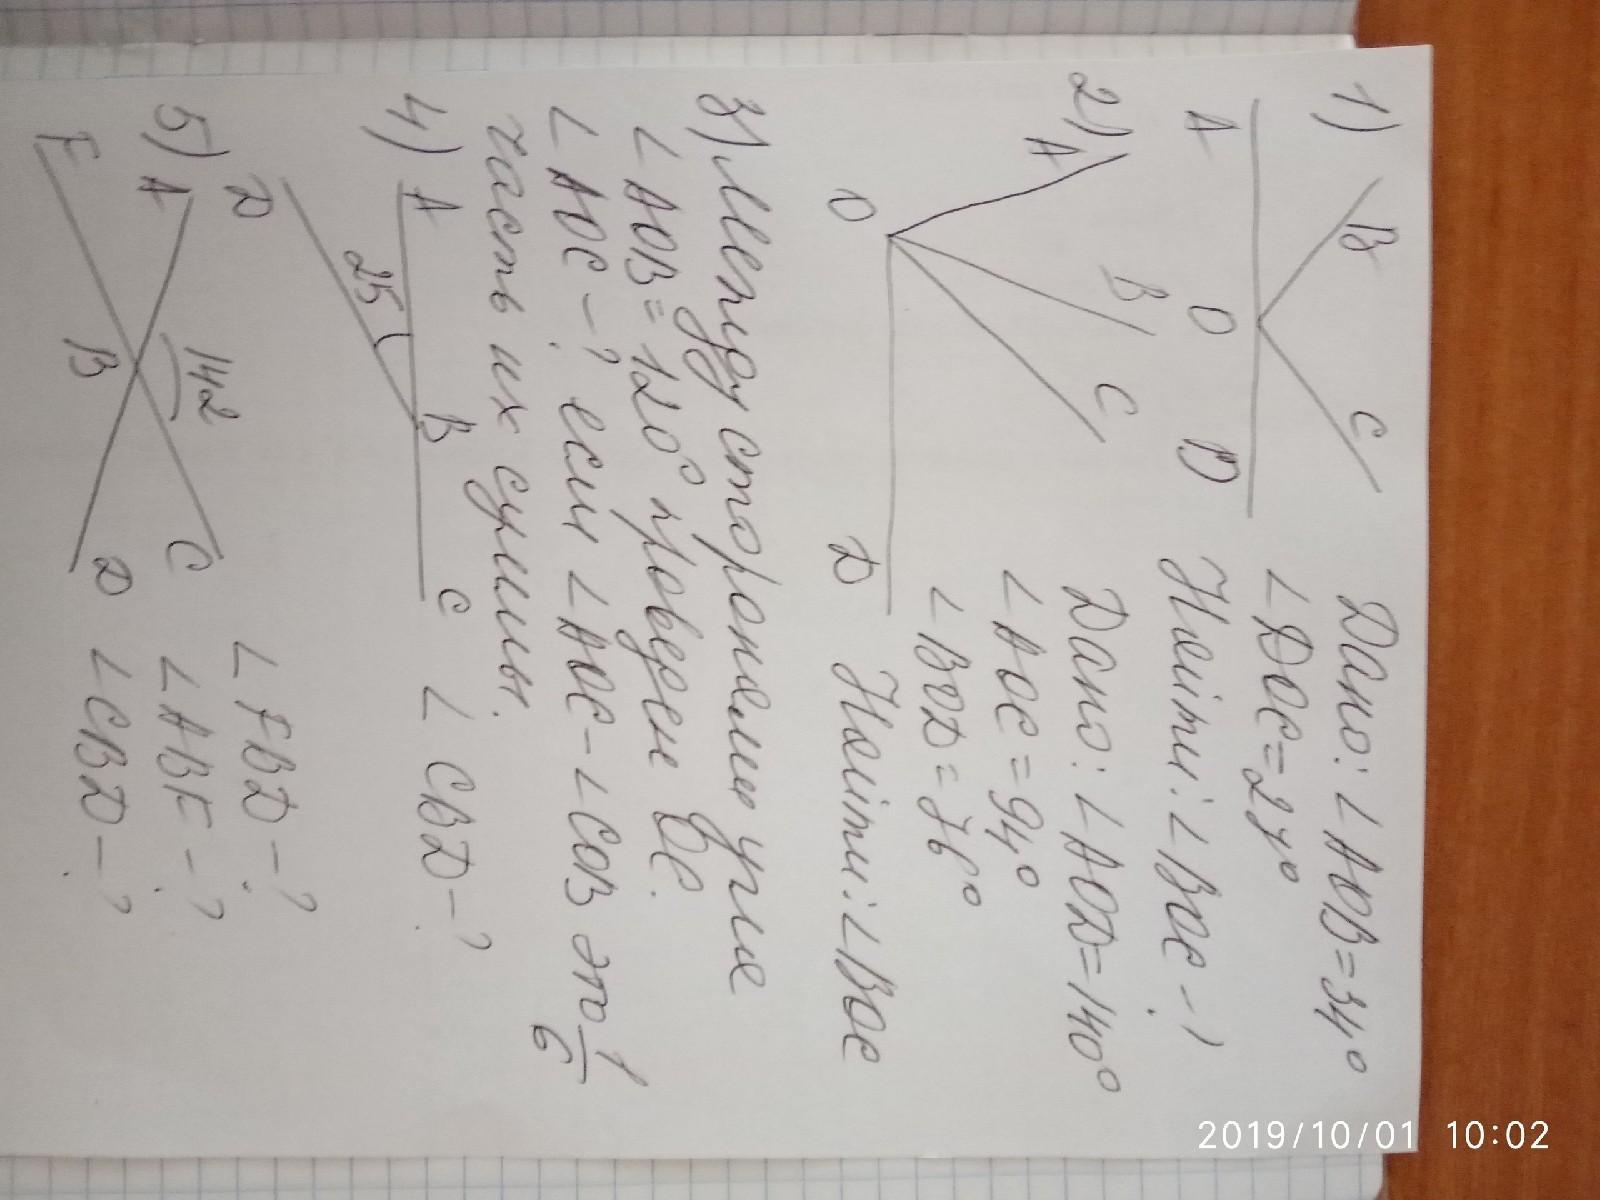 1) B C
A O D
Дано: ∠AOB=34°
∠DOC=27°
Найти: ∠BOC-?
2) A B C
O D
Дано: ∠AOD=140°
∠AOC=94°
∠BOD=76°
Найти: ∠BOC
3) Между сторонами угла
∠AOB=120° проведен OC.
∠AOC-? если ∠AOC-∠COB это 1/6
часть их суммы.
4) A B C
25
D
∠CBD-?
5) A 142 C
F B D
∠FBD-?
∠ABF-?
∠CBD-?
2019/10/01 10:02